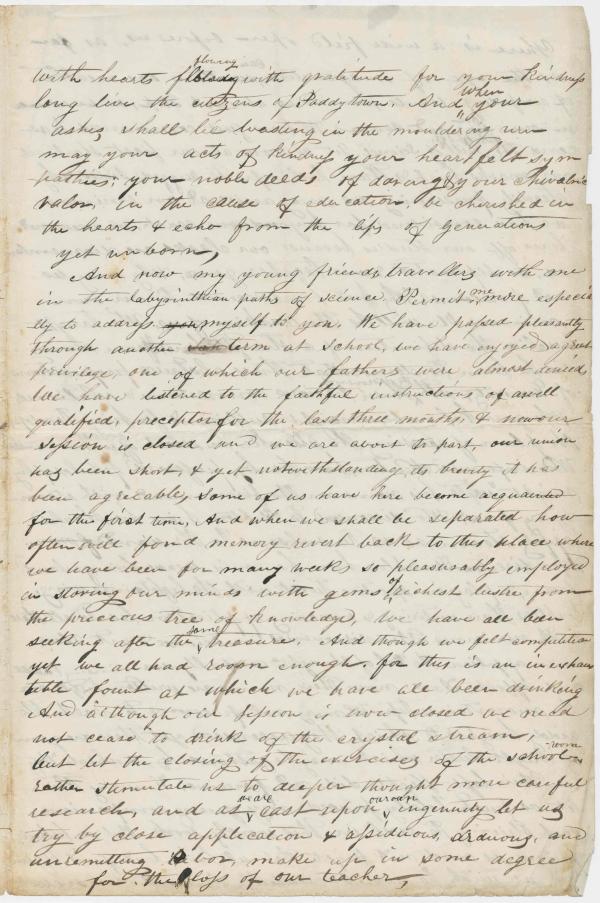 flowing
with hearts with gratitude for your kindness
long live the citizens of Paddytown. And when your
ashes shall lie wasting in the mouldering urn
may your acts of kindness your heartfelt sym
pathies; your noble deeds of daring & your chivalric
valor in the cause of education, be cherished in
the hearts & echo from the lips of generations
yet unborn,
And now my young friends travellers with me
in the labyrinthian paths of science. Permit me more especia
lly to address you myself to you. We have passed pleasantly
through another term at school, we have enjoyed a great
privilege one of which our fathers were almost denied,
We have listened to the faithful instructions of a well
qualified, preceptor for the last three months, & now our
session is closed and we are about to part, our union
has been short, & yet notwithstanding its brevity it has
been agreeable, some of us have here become acquainted
for the first time, And when we shall be separated how
often will fond memory revert back to this place where
we have been for many weeks so pleasurably employed
in storing our minds with gems of richest lustre from
the precious tree of knowledge, We have all been
seeking after the same treasure. And though we felt competition
yet we all had room enough. for this is an inexhaus
tible fount at which we have all been drinking
And although our session is now closed we need
not cease to drink of the crystal stream,
but let the closing of the exercises of the school room
rather stimulate us to deeper thought more careful
research, and as we are cast upon our own ingenuity let us
try by close application & assiduous, arduous, and
unremitting labor, make up in some degree
for the loss of our teacher,